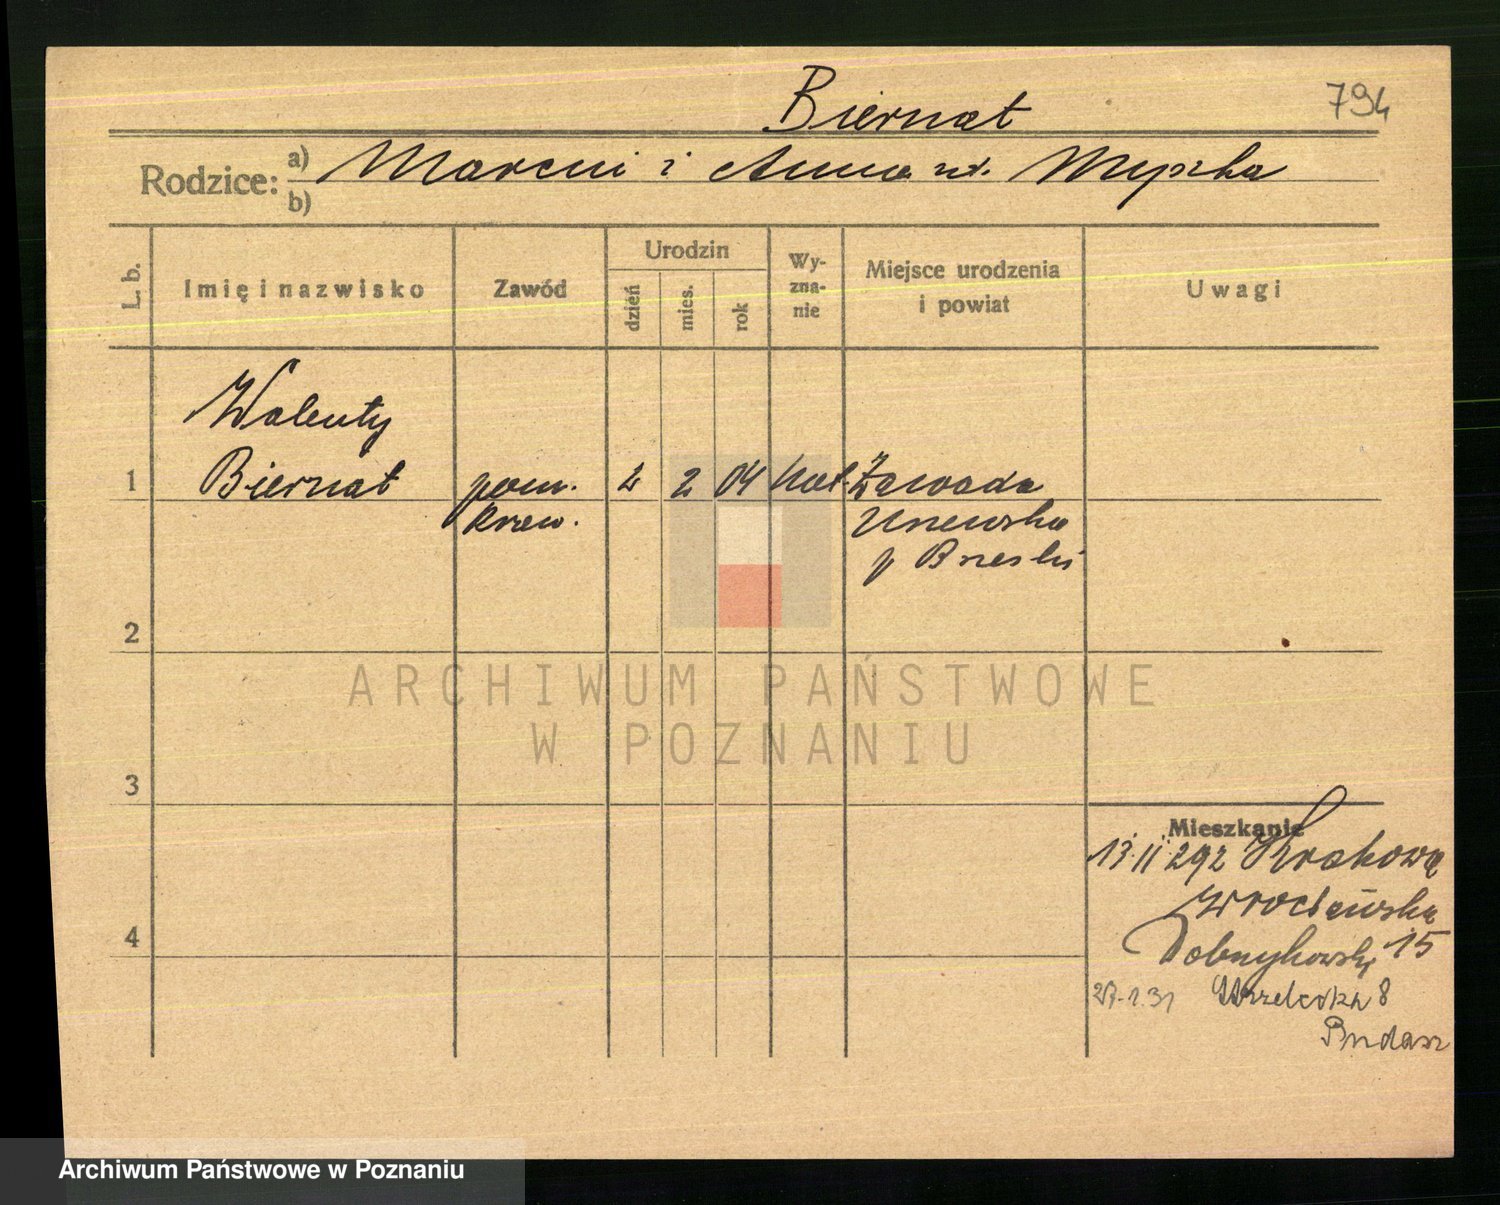 Biernat
794
Rodzice: a) Marcin i Anna ur. Myszka
b)
L. b.
Imię i nazwisko
Zawód
Urodzin
dzień
mies.
rok
Wy-
zna-
nie
Miejsce urodzenia
i powiat
Uwagi
Walenty
1 Biernat pom. 2 2 04 kat. Zawada
kraw. Uszewska
p Brzesko
2
3
4
Mieszkanie
13.II 292 Krakowa
Wrocławska
15
27.1.31 Strzelecka 8
ARCHIWUM PAŃSTWOWE
W POZNANIU
Archiwum Państwowe w Poznaniu